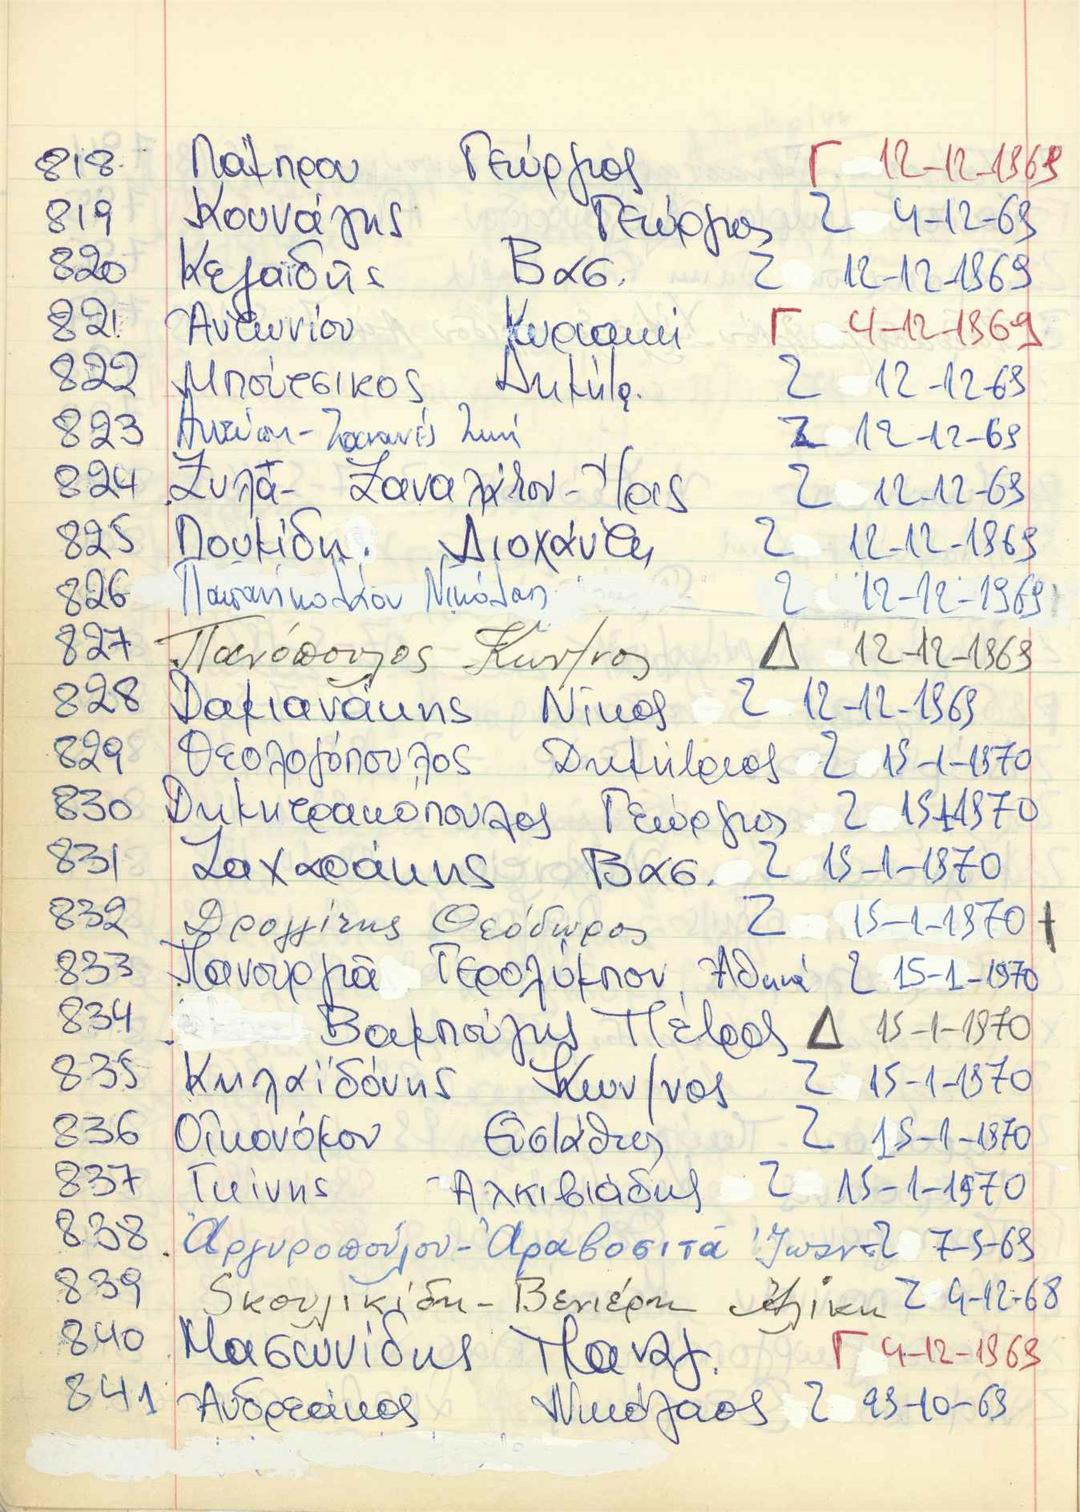 818 Γεώργιος Γ 12-12-1969
819 Κουνάλης Γεώργιος Ζ 4-12-69
820 Κελαϊδής Βασ. Ζ 12-12-1969
821 Αντωνίου Κυριακή Γ 4-12-1969
822 Μπούτσικος Δημήτρ. Ζ 12-12-69
823 Ζωή Ζ 12-12-69
824 Ξυλά- Ζ 12-12-69
825 Πουμίδη Διοχάνθη Ζ 12-12-1969
826 Παπανικολάου Νικόλαος Ζ 12-12-1969
827 Πανόπουλος Κων/νος Δ 12-12-1969
828 Δαμιανάκης Νίκος Ζ 12-12-1969
829 Θεολογόπουλος Δημήτριος Ζ 15-1-1970
830 Δημητρακόπουλος Γεώργιος Ζ 15-1-1970
831 Ζαχαράκης Βασ. Ζ 15-1-1970
832 Δρογγίτης Θεόδωρος Ζ 15-1-1970 †
833 Πανουργιά Γερολύμπου Αθηνά Ζ 15-1-1970
834 Βαμπούλης Πέτρος Δ 15-1-1970
835 Κηλαϊδόνης Κων/νος Ζ 15-1-1970
836 Οικονόμου Ευστάθιος Ζ 15-1-1970
837 Γκίνης Αλκιβιάδης Ζ 15-1-1970
838 Αργυροπούλου-Αραβοσιτά Ζ 7-5-69
839 Σκουλικίδη-Βενιέρη Αλίκη Ζ 4-12-68
840 Μασωνίδης Παναγ. Γ 4-12-1969
841 Ανδρεάκος Νικόλαος Ζ 23-10-69